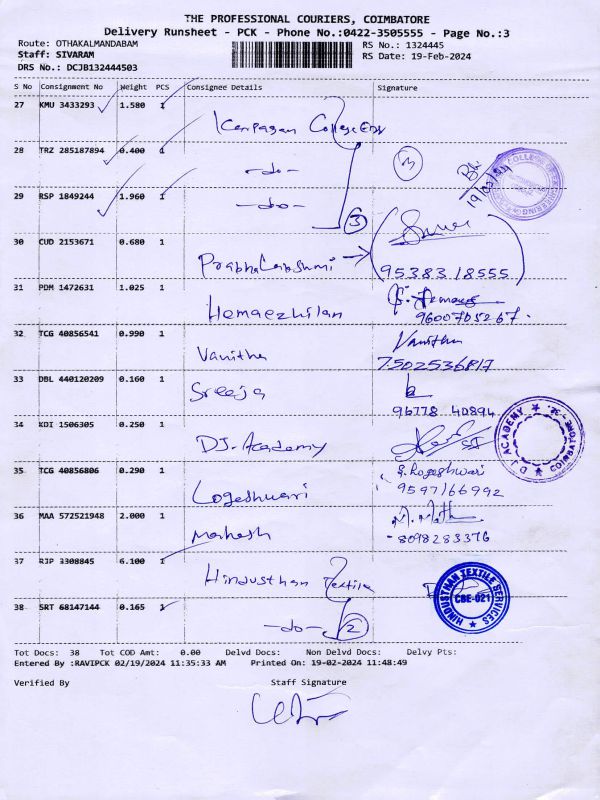 THE PROFESSIONAL COURIERS, COIMBATORE
Delivery Runsheet - PCK - Phone No.:0422-3505555 - Page No.:3
Route: OTHAKALMANDABAM RS No.: 1324445
Staff: SIVARAM RS Date: 19-Feb-2024
DRS No.: DCJB132444503
S No Consignment No Weight PCS Consignee Details Signature
27 KMU 3433293 1.580 1 Karpagam College Eng
28 TRZ 285187894 0.400 1 -do- 3
29 RSP 1849244 1.960 1 -do- 3
30 CUD 2153671 0.680 1 Prabhalakshmi
9538318555
31 PDM 1472631 1.025 1 Hemaezhilan
9600705267.
32 TCG 40856541 0.990 1 Vanitha Vanitha
7502536817
33 DBL 440120209 0.160 1 Sreeja
96778 40894
34 KDI 1506305 0.250 1 DJ. Academy
D J ACADEMY COIMBATORE - 32.
35 TCG 40856806 0.290 1 Logeshwari S. Logeshwari
9597166992
36 MAA 572521948 2.000 1 Mahesh
8098283376
37 RJP 3308845 6.100 1 Hindusthan Textile
HINDUSTHAN TEXTILE SERVICES
CBE-021
38 SRT 68147144 0.165 1 -do- 2
Tot Docs: 38 Tot COD Amt: 0.00 Delvd Docs: Non Delvd Docs: Delvy Pts:
Entered By :RAVIPCK 02/19/2024 11:35:33 AM Printed On: 19-02-2024 11:48:49
Verified By Staff Signature